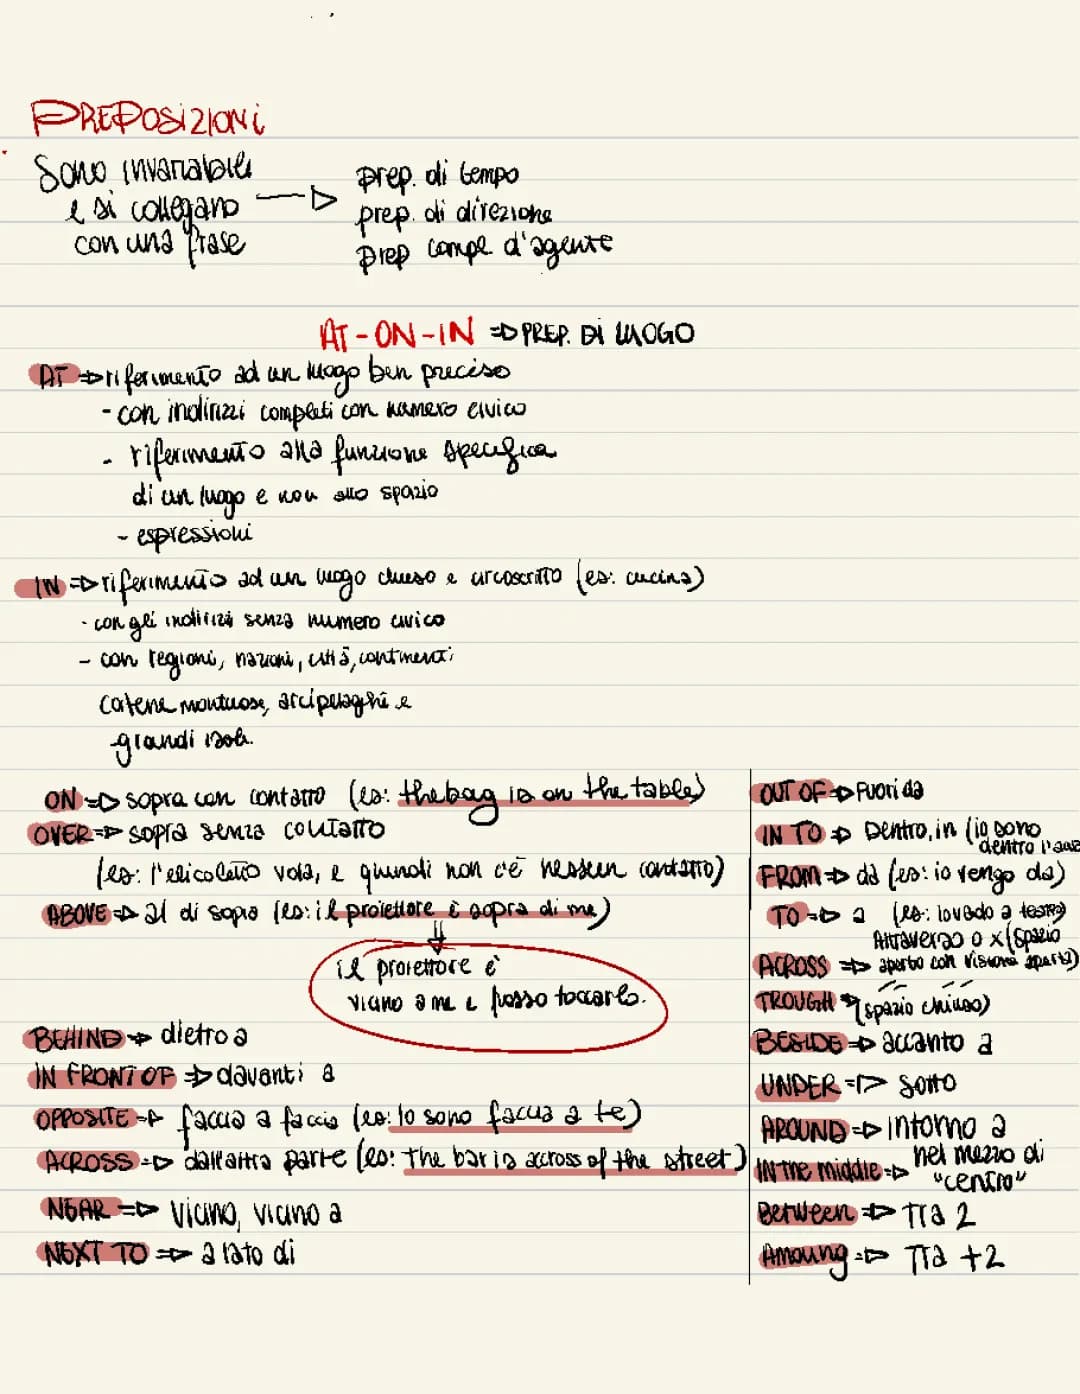 PREPOSIZIONI
Sono invariabili
e si collegano
con una frase
prep. di tempo
prep. di direzione
prep compl d'agente
AT-ON-IN ⇒ PREP. DI LUOGO
AT ⇒ riferimento ad un luogo ben preciso
- con indirizzi completi con numero civico
- riferimento alla funzione specifica
di un luogo e non allo spazio
- espressioni
IN ⇒ riferimento ad un luogo chiuso e circoscritto (es: cucina)
- con gli indirizzi senza numero civico
- con regioni, nazioni, città, continenti
catene montuose, arcipelaghi e
grandi isole.
ON ⇒ sopra con contatto (es: the bag is on the table)
OVER ⇒ sopra senza contatto
(es: l'elicottero vola, e quindi non c'è nessun contatto)
ABOVE ⇒ al di sopra (es: il proiettore è sopra di me)
il proiettore è
vicino a me e posso toccarlo.
BEHIND ⇒ dietro a
IN FRONT OF ⇒ davanti a
OPPOSITE ⇒ faccia a faccia (es: Io sono faccia a te)
ACROSS ⇒ dall'altra parte (es: the bar is across of the street)
NEAR ⇒ vicino, vicino a
NEXT TO ⇒ a lato di
OUT OF ⇒ Fuori da
IN TO ⇒ Dentro, in (io sono
dentro l'
FROM ⇒ da (es: io vengo da)
TO ⇒ a (es: lo vado a
Attraverso o x (spazio
ACROSS ⇒ aperto con visione aperta)
TROUGH ⇒ (spazio chiuso)
BESIDE ⇒ accanto a
UNDER ⇒ sotto
AROUND ⇒ intorno a
IN the middle ⇒ nel mezzo di
"centro"
Between ⇒ Tra 2
Amoung ⇒ Tra +2